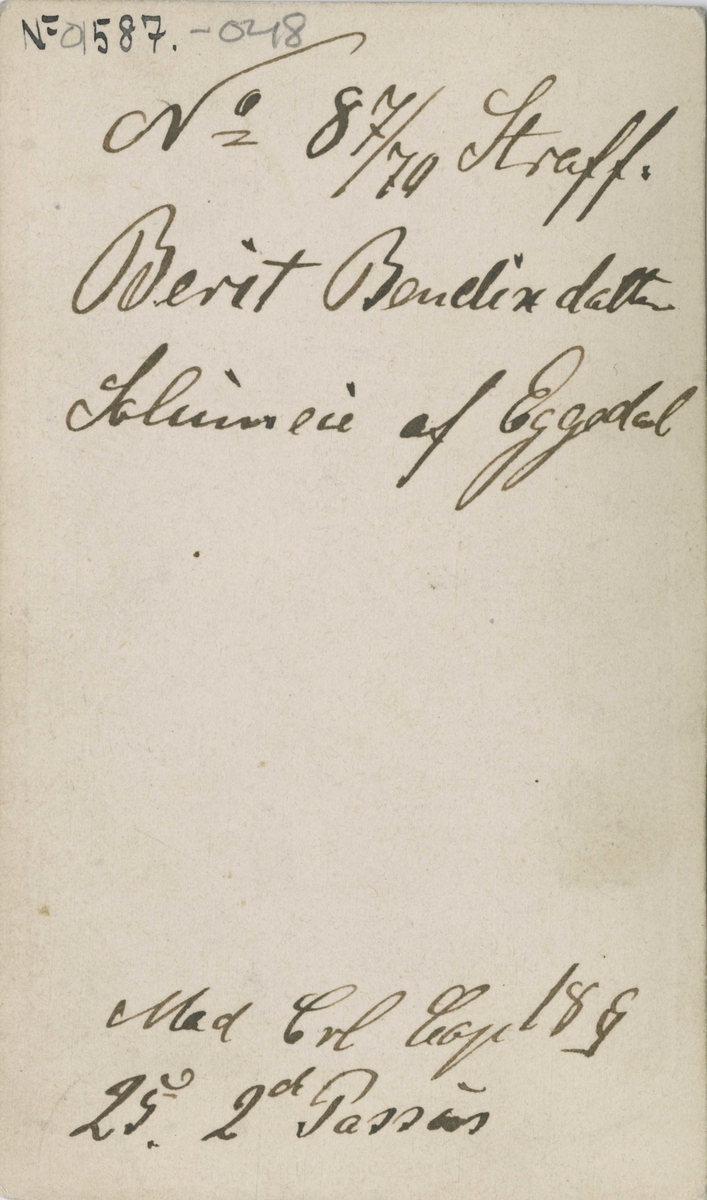 № 01587. - 048
No 87/79 Straff.
Berit Bendixdatter
af Eggedal
Med Crl Cap 18 §
25. 2d Passus